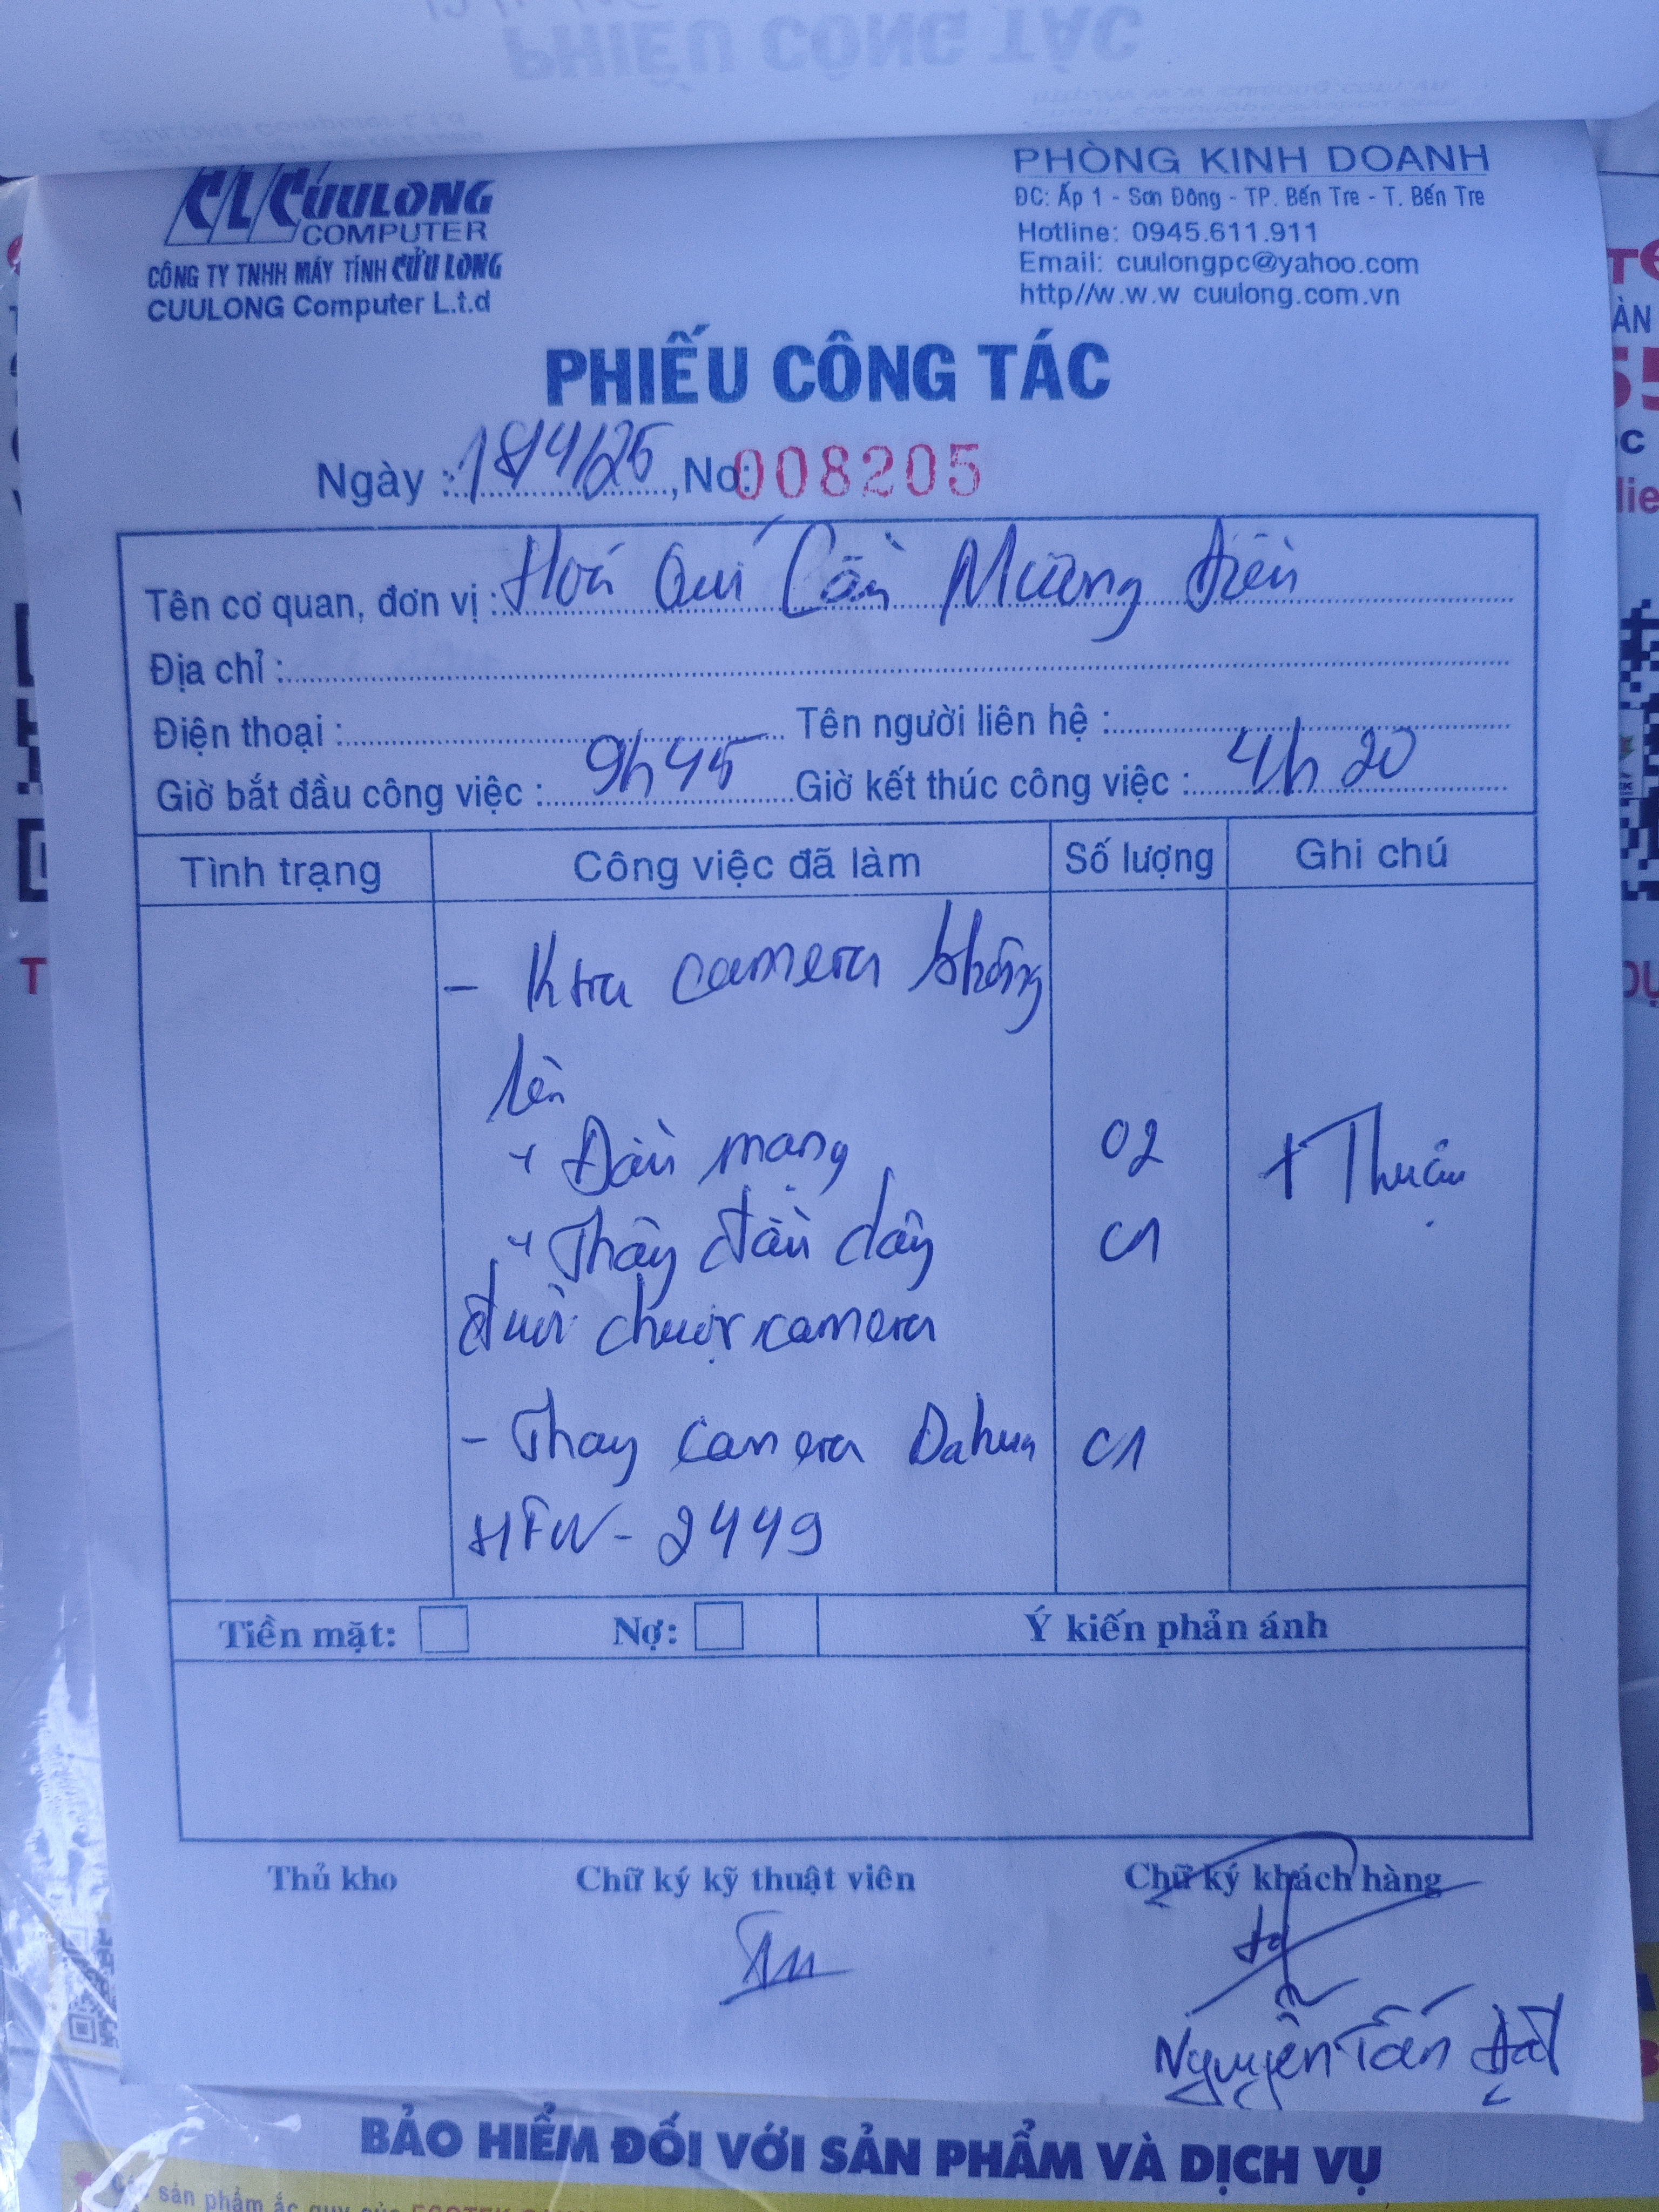 PHIẾU CÔNG TÁC
CLC CUULONG
COMPUTER
CÔNG TY TNHH MÁY TÍNH CỬU LONG
CUULONG Computer L.t.d
PHÒNG KINH DOANH
ĐC: Ấp 1 - Sơn Đông - TP. Bến Tre - T. Bến Tre
Hotline: 0945.611.911
Email: cuulongpc@yahoo.com
http//w.w.w cuulong.com.vn
PHIẾU CÔNG TÁC
Ngày : 18/4/25, No: 008205
Tên cơ quan, đơn vị : Hoá Quí Cầu Mương Điều
Địa chỉ :
Điện thoại : Tên người liên hệ :
Giờ bắt đầu công việc : 9h45 Giờ kết thúc công việc : 4h20
Tình trạng Công việc đã làm Số lượng Ghi chú
- Ktra camera không
lên
+ Đầu mạng 02 + Thuận
+ Thây đầu dây 01
đuôi chuột camera
- Thay camera Dahua 01
HFW - 2449
Tiền mặt: Nợ: Ý kiến phản ánh
Thủ kho Chữ ký kỹ thuật viên Chữ ký khách hàng
Nguyễn Tấn Đạt
BẢO HIỂM ĐỐI VỚI SẢN PHẨM VÀ DỊCH VỤ
sản phẩm ắc quy của